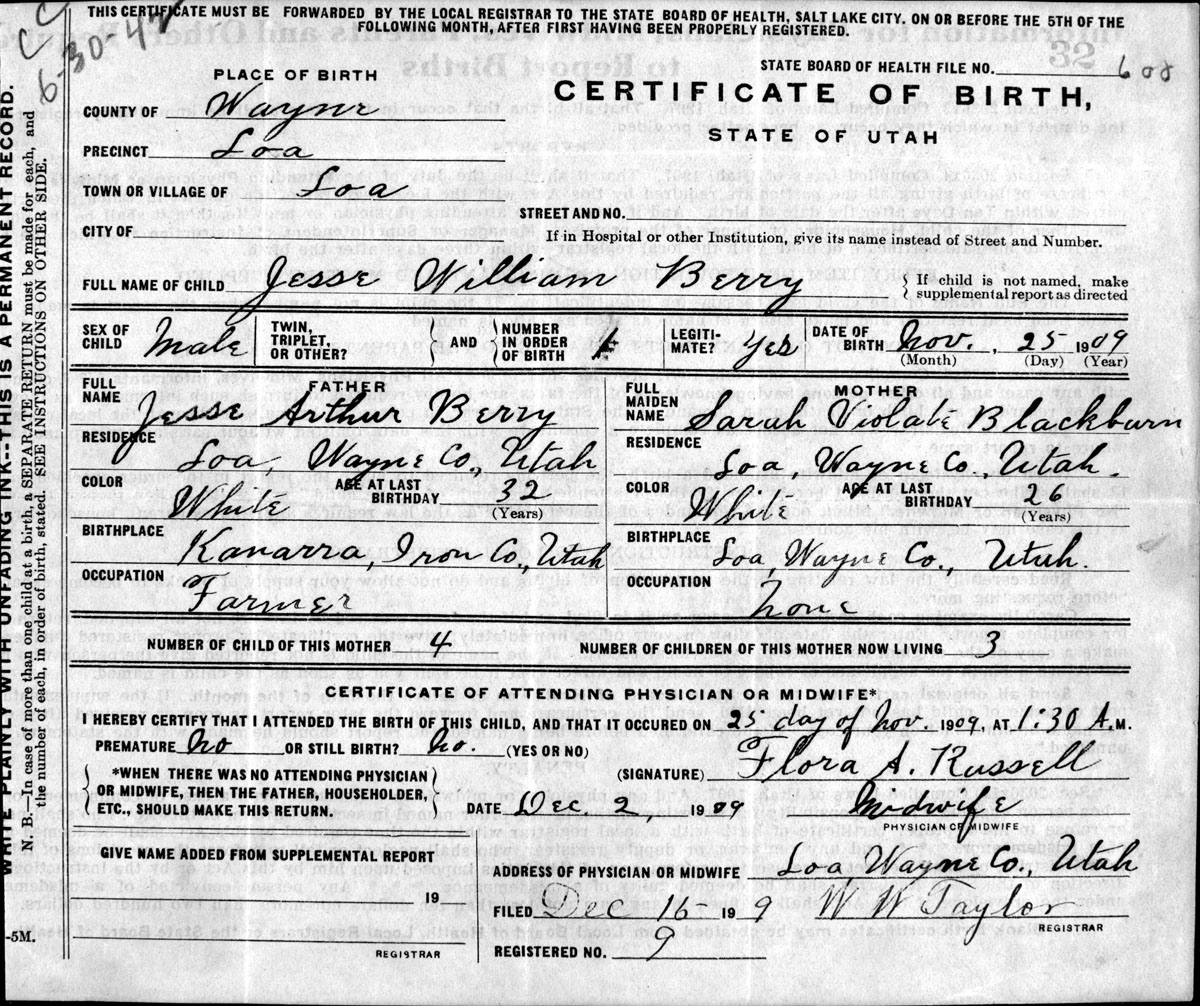 THIS CERTIFICATE MUST BE FORWARDED BY THE LOCAL REGISTRAR TO THE STATE BOARD OF HEALTH, SALT LAKE CITY. ON OR BEFORE THE 5TH OF THE
FOLLOWING MONTH, AFTER FIRST HAVING BEEN PROPERLY REGISTERED.
C C
6-30-42
32
STATE BOARD OF HEALTH FILE NO. 608
PLACE OF BIRTH
CERTIFICATE OF BIRTH,
STATE OF UTAH
COUNTY OF Wayne
PRECINCT Loa
TOWN OR VILLAGE OF Loa
STREET AND NO.
CITY OF
If in Hospital or other Institution, give its name instead of Street and Number.
FULL NAME OF CHILD Jesse William Berry { If child is not named, make
supplemental report as directed
SEX OF CHILD Male TWIN, TRIPLET, OR OTHER? } AND { NUMBER IN ORDER OF BIRTH LEGITI-MATE? Yes DATE OF BIRTH Nov. , 25 1909
(Month) (Day) (Year)
FATHER
FULL NAME Jesse Arthur Berry
RESIDENCE
Loa, Wayne Co., Utah
COLOR White AGE AT LAST BIRTHDAY 32
(Years)
BIRTHPLACE
Kanarra, Iron Co., Utah
OCCUPATION
Farmer
MOTHER
FULL MAIDEN NAME Sarah Violate Blackburn
RESIDENCE
Loa, Wayne Co. Utah.
COLOR White AGE AT LAST BIRTHDAY 26
(Years)
BIRTHPLACE
Loa, Wayne Co., Utah.
OCCUPATION
None
NUMBER OF CHILD OF THIS MOTHER 4 NUMBER OF CHILDREN OF THIS MOTHER NOW LIVING 3
CERTIFICATE OF ATTENDING PHYSICIAN OR MIDWIFE*
I HEREBY CERTIFY THAT I ATTENDED THE BIRTH OF THIS CHILD, AND THAT IT OCCURED ON 25 day of Nov. 1909, AT 1:30 A.M.
PREMATURE No OR STILL BIRTH? No. (YES OR NO)
(SIGNATURE) Flora A. Russell
{ *WHEN THERE WAS NO ATTENDING PHYSICIAN
OR MIDWIFE, THEN THE FATHER, HOUSEHOLDER,
ETC., SHOULD MAKE THIS RETURN. }
DATE Dec 2, 1909 Midwife
PHYSICIAN OR MIDWIFE
GIVE NAME ADDED FROM SUPPLEMENTAL REPORT
ADDRESS OF PHYSICIAN OR MIDWIFE Loa Wayne Co., Utah
19
FILED Dec 16 19 9 W W Taylor
REGISTRAR
REGISTRAR
REGISTERED NO. 9
WRITE PLAINLY WITH UNFADING INK--THIS IS A PERMANENT RECORD.
N. B. In case of more than one child at a birth, a SEPARATE RETURN must be made for each, and
the number of each, in order of birth, stated. SEE INSTRUCTIONS ON OTHER SIDE.
-5M.